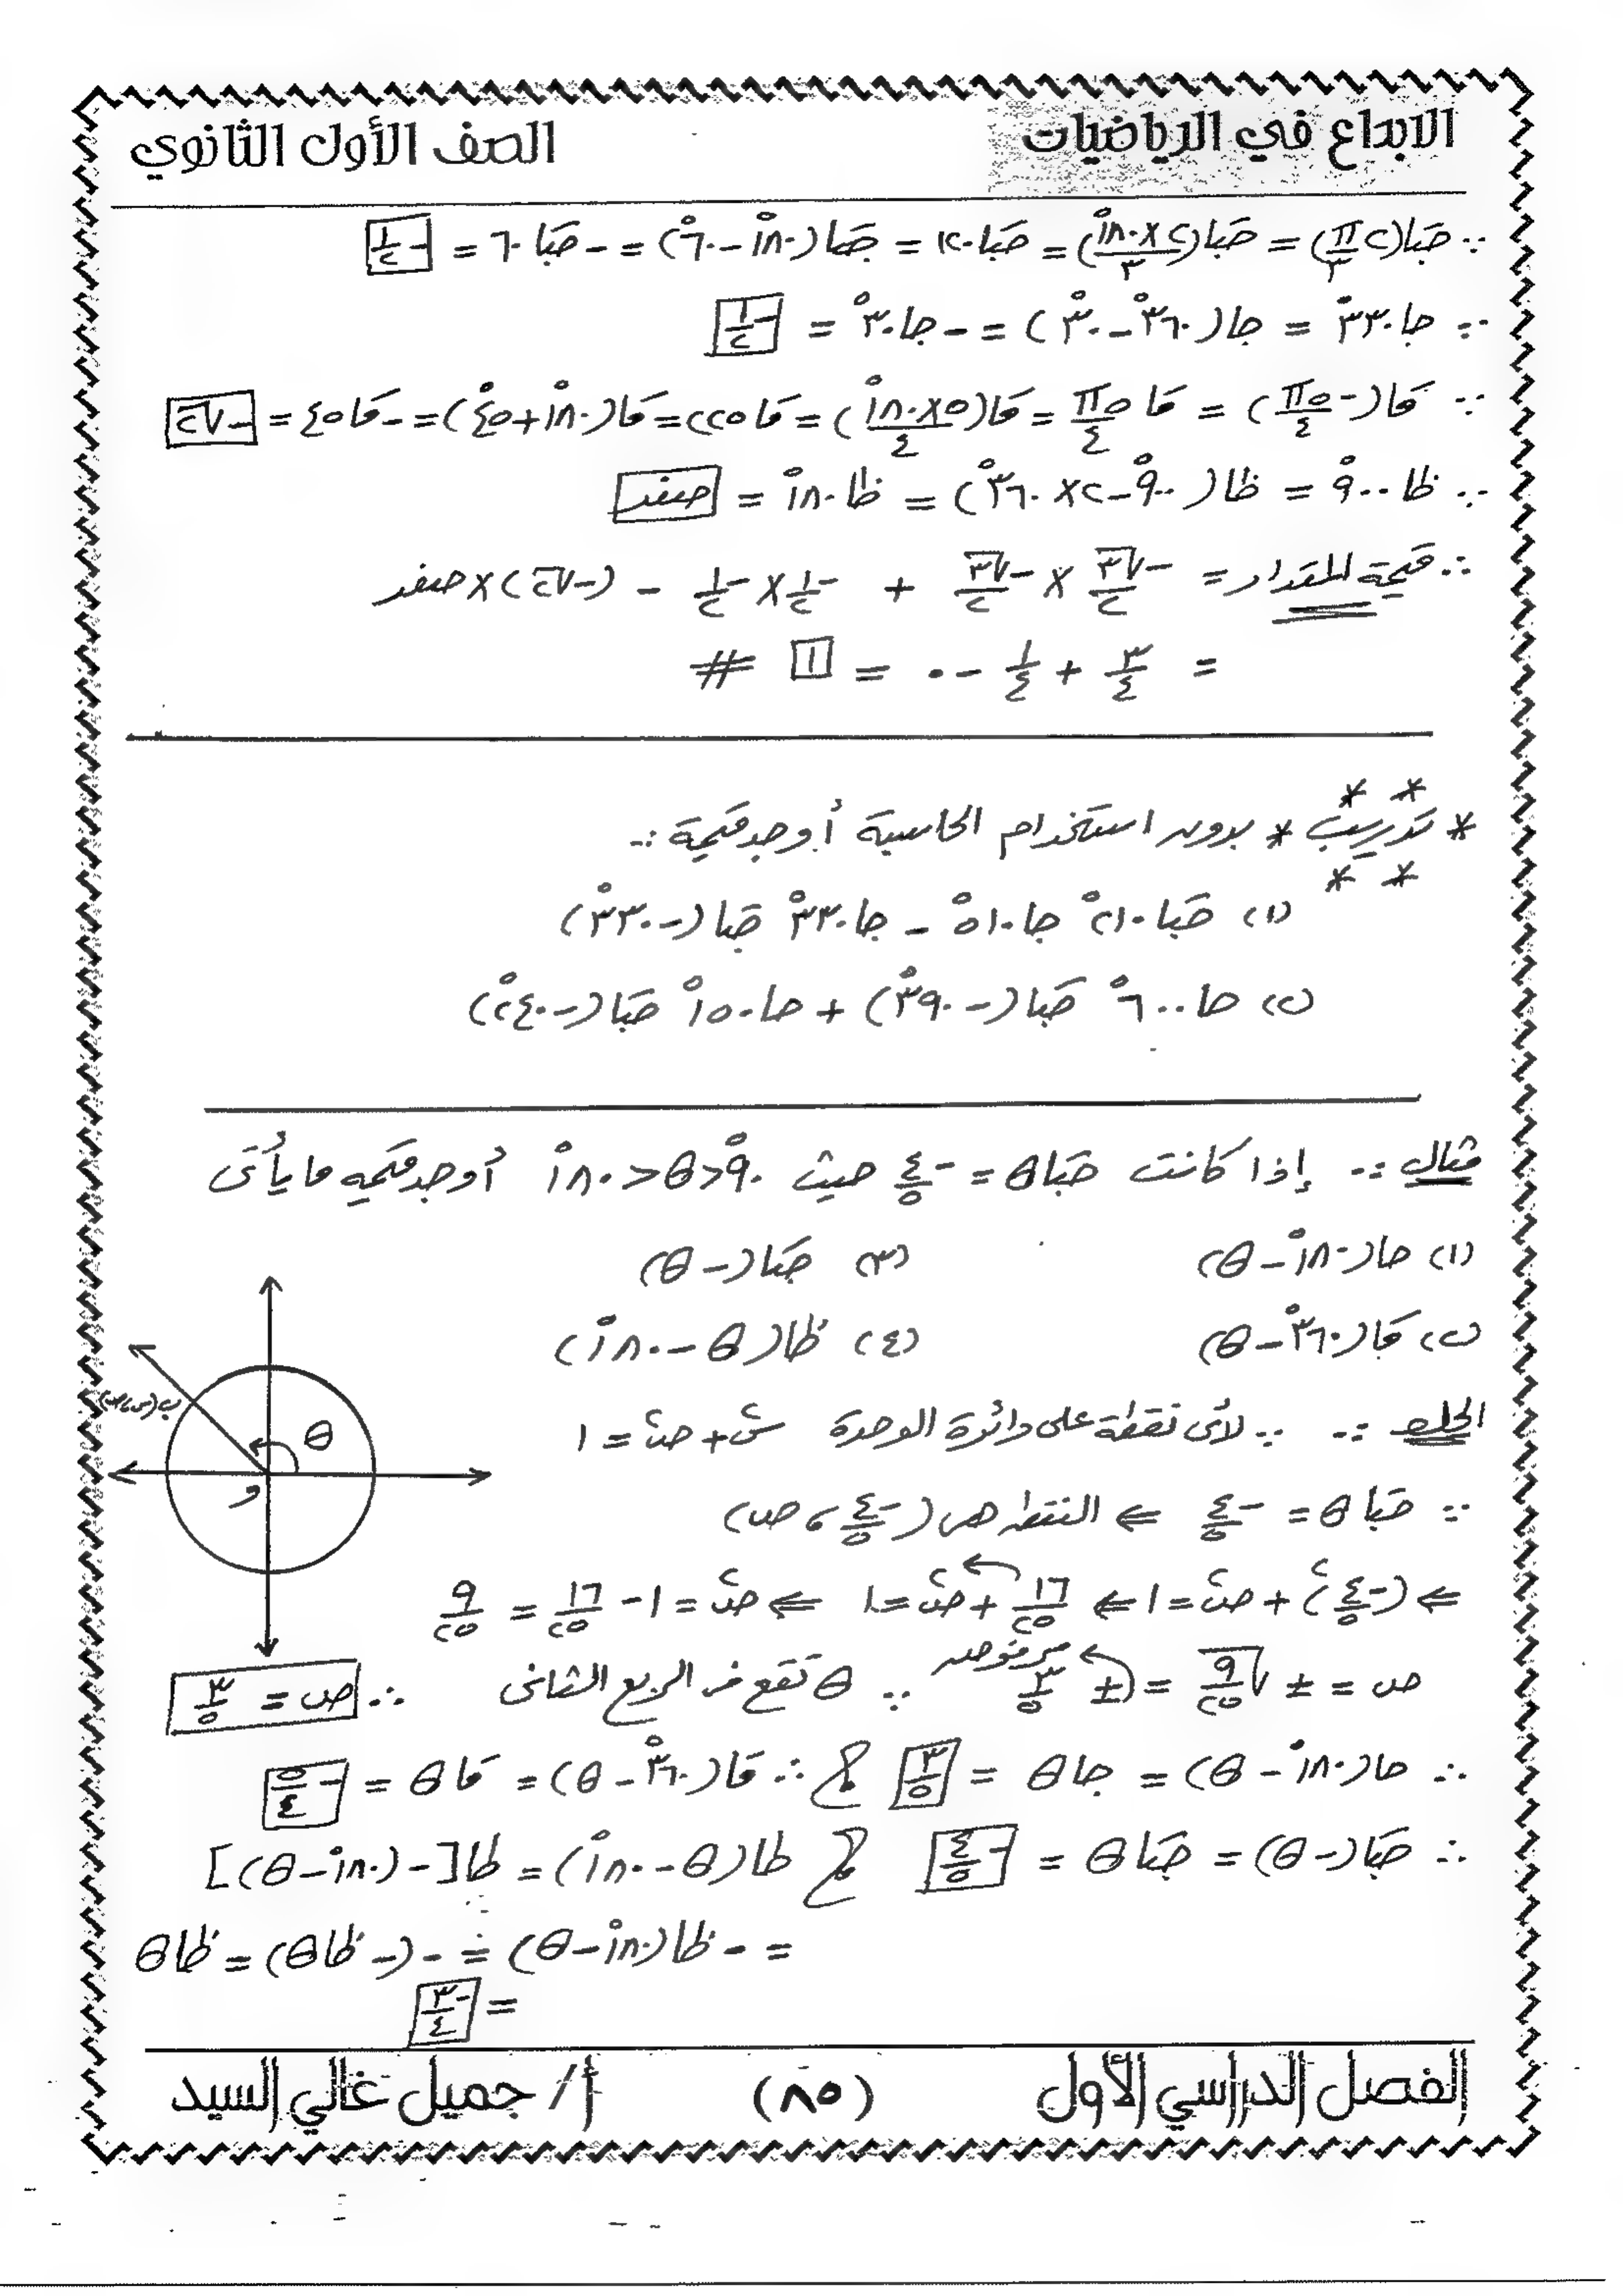 الابداع في الرياضيات الصف الأول الثانوي
∵ جتا(٢π/٣) = جتا(٢×١٨٠°/٣) = جتا١٢٠ = جتا(١٨٠°-٦٠°) = -جتا٦٠ = -١/٢
∵ جا٣٣٠° = جا(٣٦٠°-٣٠°) = -جا٣٠° = -١/٢
∵ قا(-٥π/٤) = قا ٥π/٤ = قا(٥×١٨٠°/٤) = قا٢٢٥ = قا(١٨٠°+٤٥°) = -قا٤٥ = -√٢
∵ ظا٩٠٠° = ظا(٩٠٠°-٢×٣٦٠°) = ظا١٨٠° = صفر
∴ قيمة المقدار = -√٣/٢ × -√٣/٢ + -١/٢ × -١/٢ - (-√٢)×صفر
= ٣/٤ + ١/٤ - ٠ = ١ #
* تدريب * بدون استخدام الحاسبة أوجد قيمة :-
(١) جتا٢١٠° جا٥١٠° - جا٣٣٠° جتا(-٣٣٠°)
(٢) حا٦٠٠° جتا(-٣٩٠°) + حا١٥٠° جتا(-٢٤٠°)
مثال :- إذا كانت جتاθ = -٤/٥ حيث ٩٠°<θ<١٨٠° أوجد قيمه ما يأتى
(١) حا(١٨٠°-θ) (٣) جتا(-θ)
(٢) قا(٣٦٠°-θ) (٤) ظا(θ-١٨٠°)
الحل :- ∵ لأى نقطة على دائرة الوحدة س٢+ص٢ = ١
ب(س،ص)
θ
و
∵ جتاθ = -٤/٥ ⇐ النقطه هى (-٤/٥ ، ص)
⇐ (-٤/٥)٢ + ص٢ = ١ ⇐ ١٦/٢٥ + ص٢ = ١ ⇐ ص٢ = ١ - ١٦/٢٥ = ٩/٢٥
ص = ± √٩/٢٥ = ± ٣/٥ مرفوض ∵ θ تقع فى الربع الثانى ∴ ص = ٣/٥
∴ حا(١٨٠°-θ) = جاθ = ٣/٥ ∴ قا(٣٦٠°-θ) = قاθ = -٥/٤
∴ جتا(-θ) = جتاθ = -٤/٥ طا(θ-١٨٠°) = طا[-(١٨٠°-θ)]
= - ظا(١٨٠°-θ) = -(-ظاθ) = ظاθ
= -٣/٤
الفصل الدراسي الأول (٨٥) أ/ جميل غالي السيد